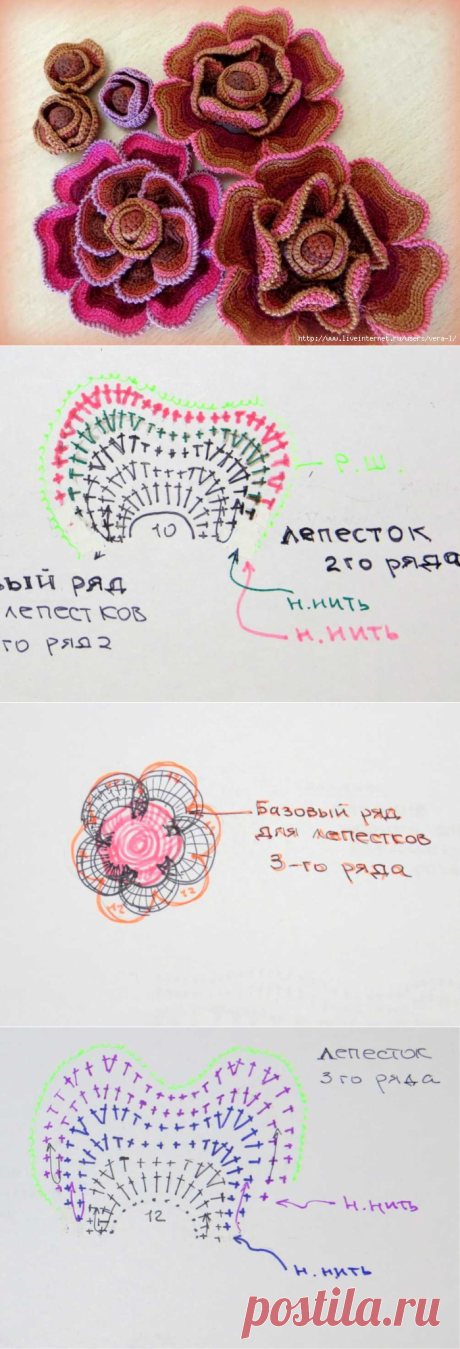 http://www.liveinternet.ru/users/vera-l/
Р.Ш.
10
лепесток
2го ряда
ый ряд
лепестков
го ряда
н.нить
н.нить
Базовый ряд
для лепестков
3-го ряда
12
12
Лепесток
3го ряда
12
н.нить
н.нить
postila.ru